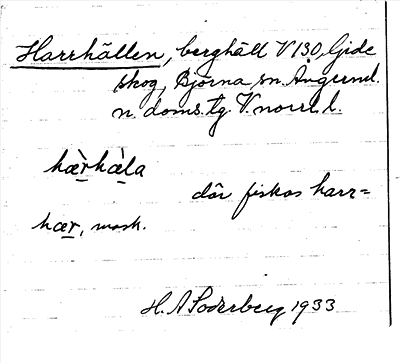 Harrhällen, berghäll V 130, Gide
skog, Björna sn. Ångerml.
n. doms. tg. V. norrl. l.
hær̀hæ̀la
där fiskas harr=
hær, mask.
H. A Söderberg 1933